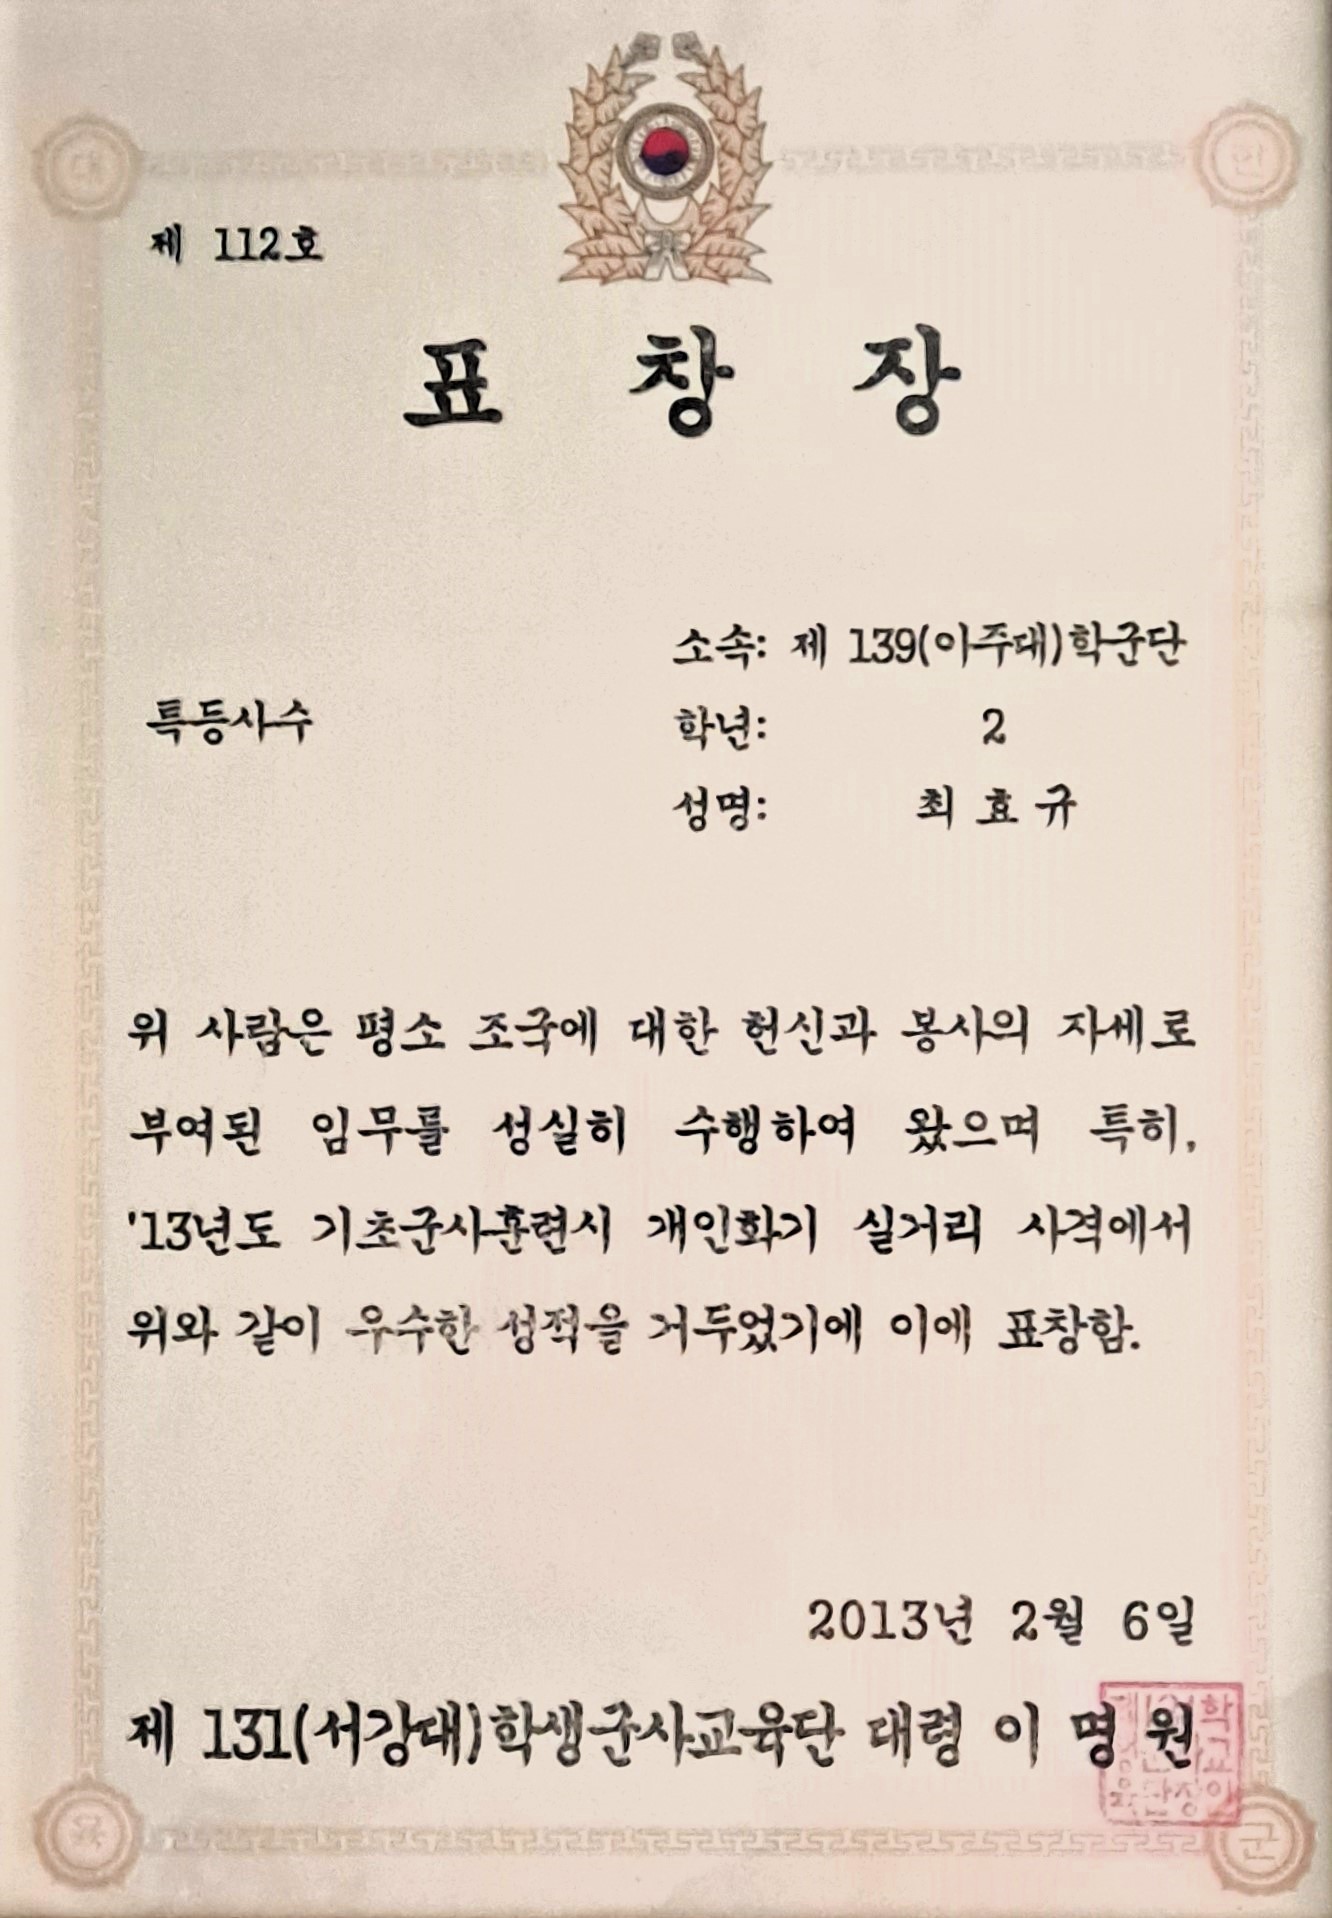 제 112호
표 창 장
소속: 제 139(아주대)학군단
특등사수
학년: 2
성명: 최 효 규
위 사람은 평소 조국에 대한 헌신과 봉사의 자세로
부여된 임무를 성실히 수행하여 왔으며 특히,
'13년도 기초군사훈련시 개인화기 실거리 사격에서
위와 같이 우수한 성적을 거두었기에 이에 표창함.
2013년 2월 6일
제 131(서강대)학생군사교육단 대령 이 명 원
군